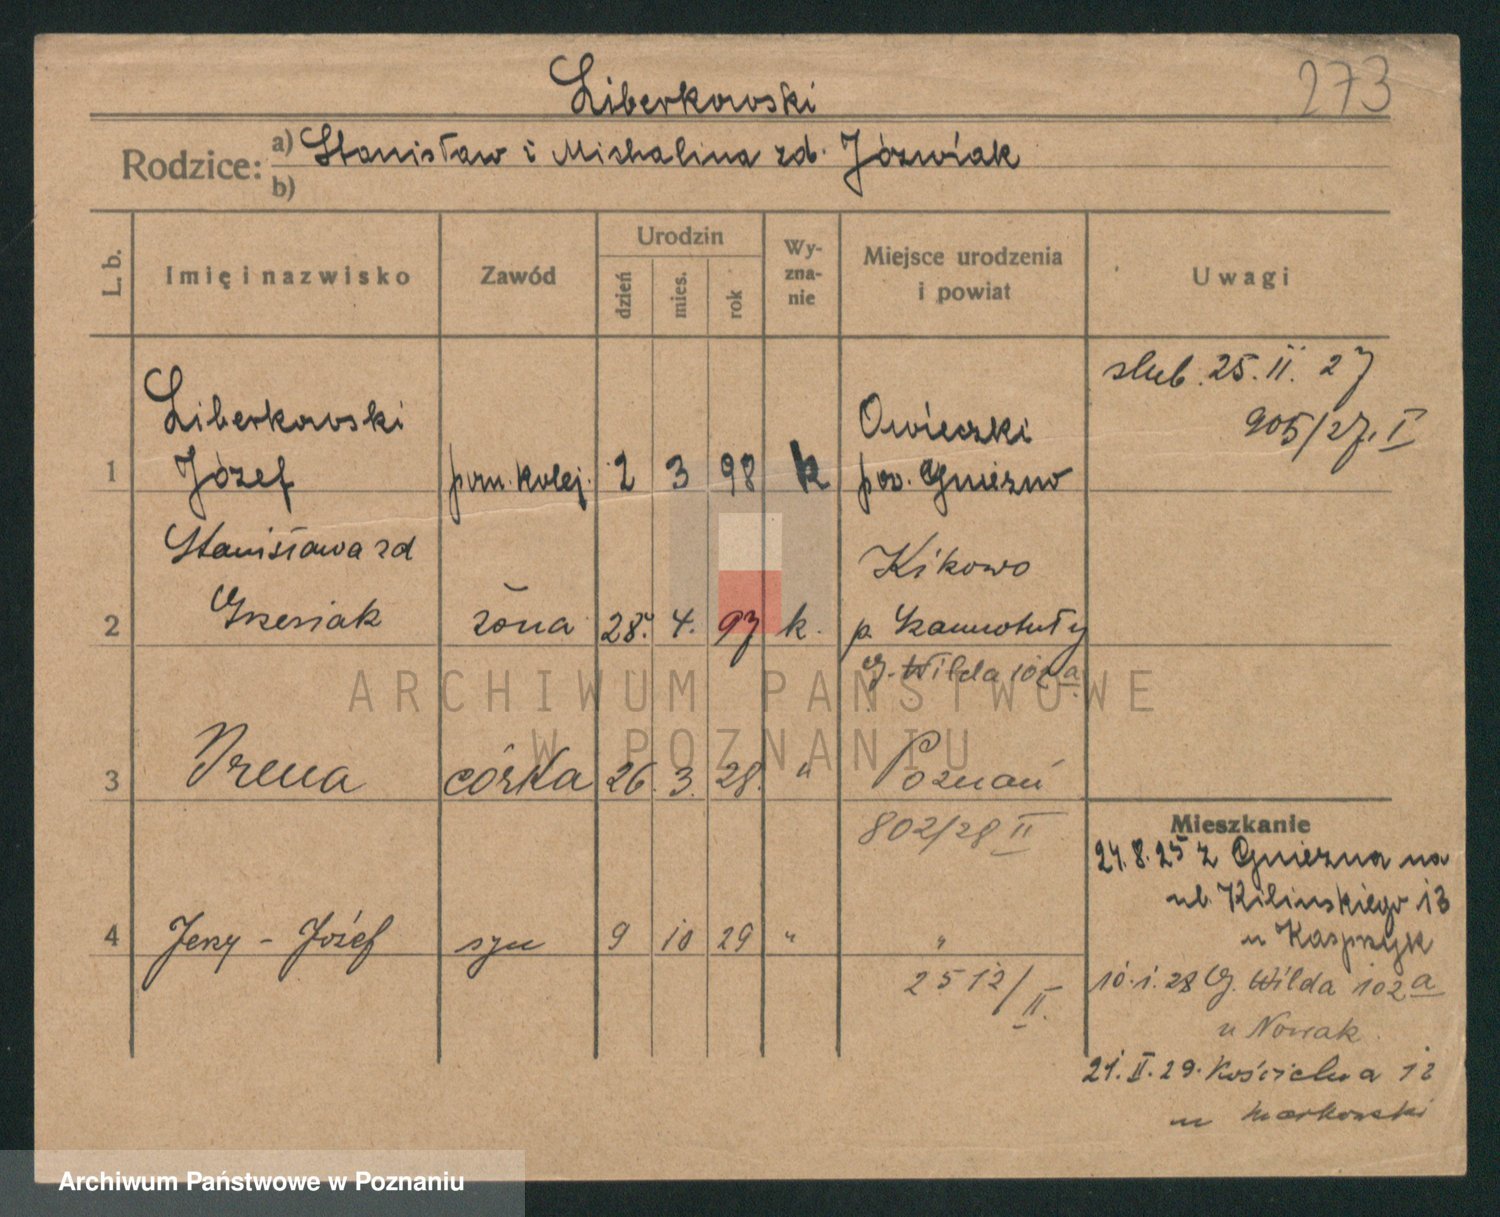 273
Liberkowski
Rodzice: a) Stanisław i Michalina zd. Jóźwiak
b)
L. b.
Imię i nazwisko
Zawód
Urodzin
dzień
mies.
rok
Wy-
zna-
nie
Miejsce urodzenia
i powiat
Uwagi
ślub. 25. II. 27
905/27. I
Liberkowski Owieczki
1 Józef pom. kolej. 2 3 98 k pow. Gniezno
Stanisława zd Kikowo
2 Grzesiak żona 28. 4. 97 k. p. Szamotuły
G. Wilda 102 a
3 Irena córka 26. 3. 28. " Poznań
802/28 II
4 Jerzy - Józef syn 9 10 29 " "
2512/II.
Mieszkanie
24.8.25 z Gniezna na
ul. Kilińskiego 13
u Kasprzyk
10.1.28 G. Wilda 102 a
u Nowak.
21. II. 29. Kościelna 12
u Markowski
ARCHIWUM PAŃSTWOWE
W POZNANIU
Archiwum Państwowe w Poznaniu